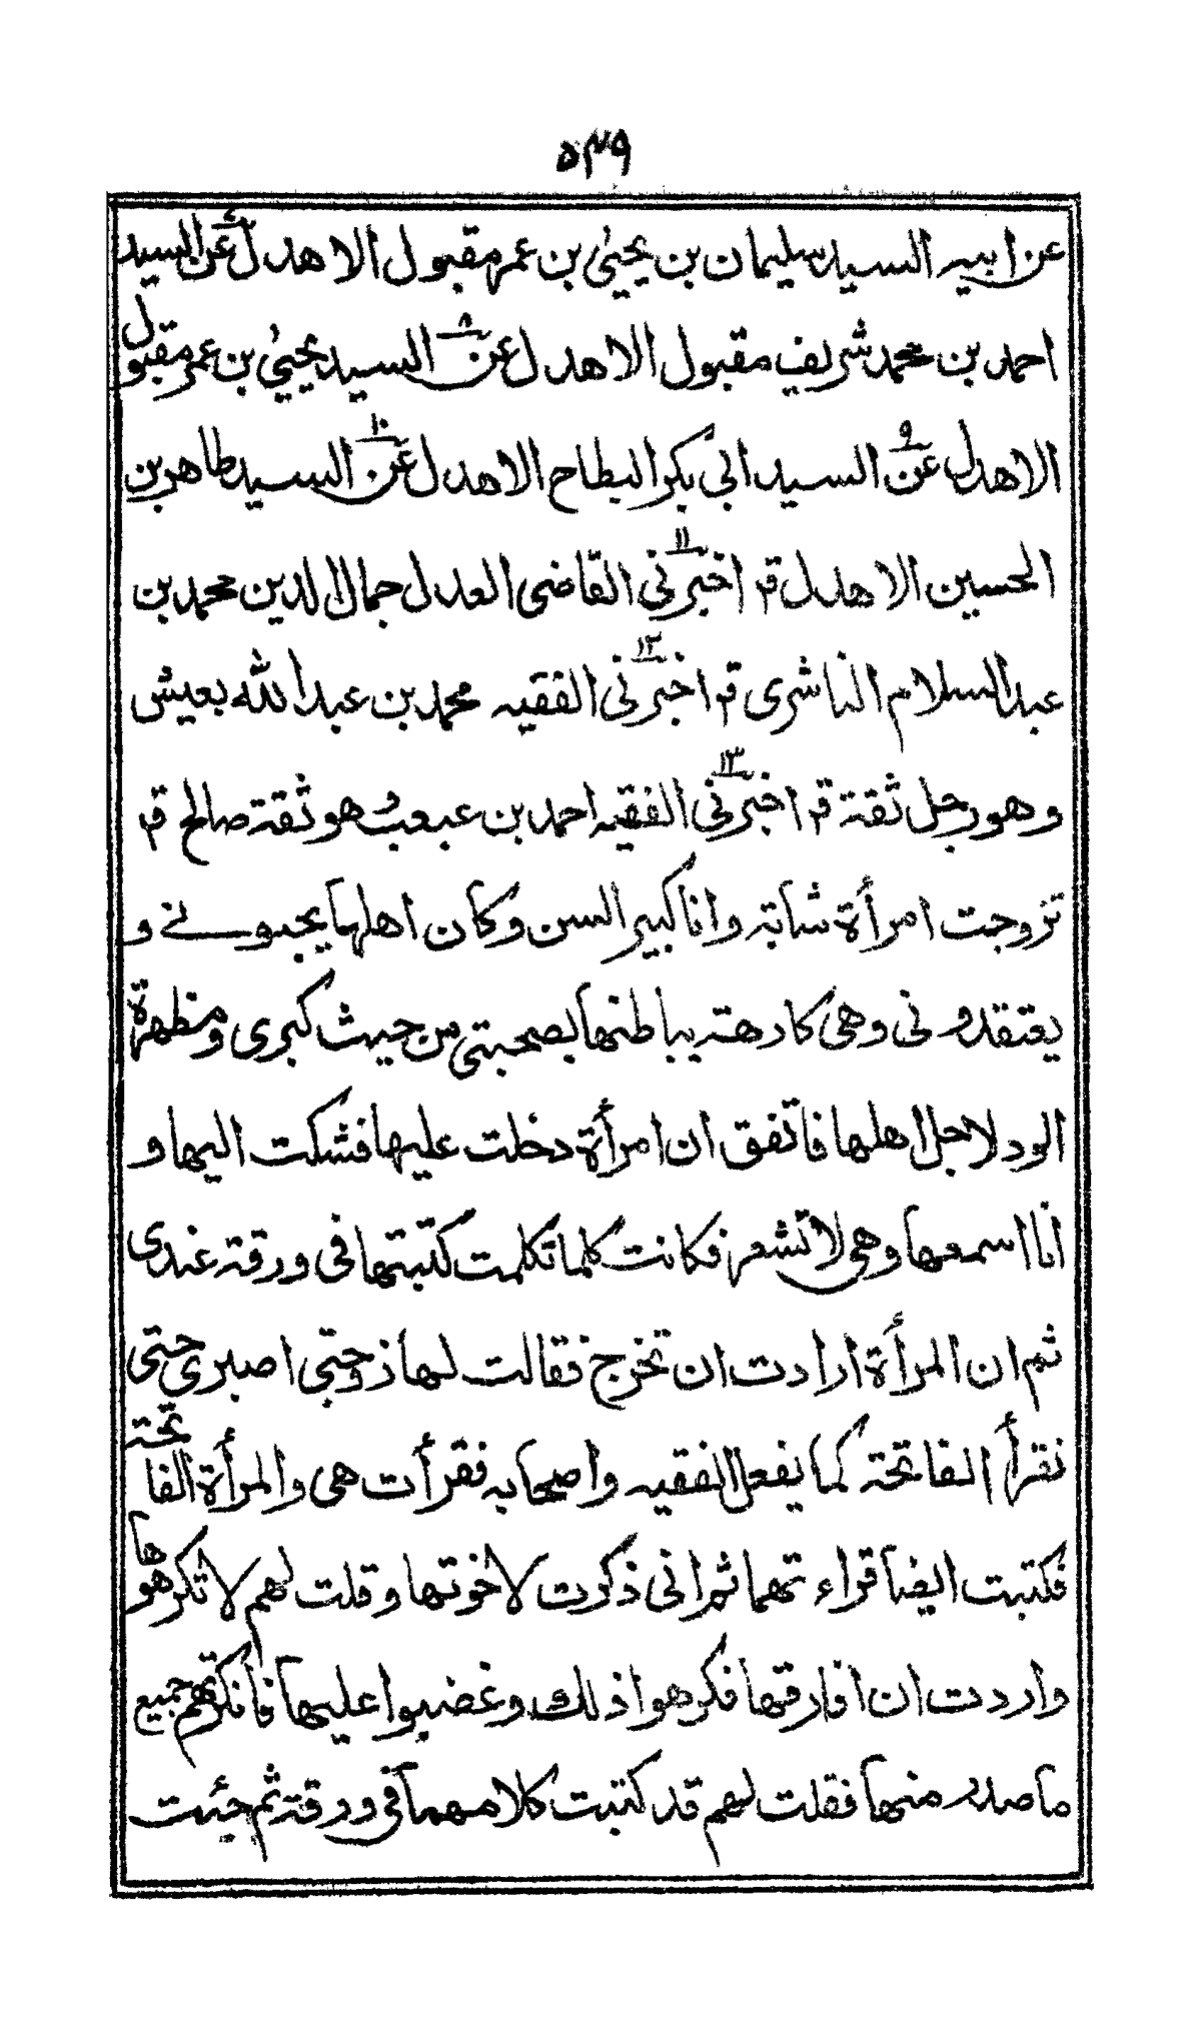 ٥٣٩
عن ابيه السيد سليمان بن يحيىٰ بن عمر مقبول الاهدل عن السيد
احمد بن محمد شريف مقبول الاهدل عن السيد يحيىٰ بن عمر مقبول
الاهدل عن السيد ابى بكر البطاح الاهدل عن السيد طاهر بن
الحسين الاهدل قم اخبرنى القاضى العدل جمال الدين محمد بن
عبد السلام الناشرى قم اخبرنى الفقيه محمد بن عبد الله بعيش
وهو رجل ثقة قم اخبرنى الفقيه احمد بن عبعب وهو ثقة صالح قم
تزوجت امرأة شابة وانا كبير السن وكان اهلها يحبونے و
يعتقدونى وهى كارهة بباطنها بصحبتى من حيث كبرى ومظهرة
الود لاجل اهلها فاتفق ان امرأة دخلت عليها فشكت اليها و
انا اسمعها وهى لا تشعر فكانت كلما تكلمت كتبتها فى ورقة عندى
ثم ان المرأة ارادت ان تخرج فقالت لها زوجتى اصبرى حتى
نقرأ الفاتحة كما يفعل الفقيه واصحابه فقرأت هى والمرأة الفاتحة
فكتبت ايضا قراءتهما ثم انى ذكرت لاخوتها وقلت لهم لا تكرهوها
واردت ان افارقها فكرهوا ذلك وغضبوا عليها فانكرتهم جميع
ما صدر منها فقلت لهم قد كتبت كلامهما فى ورقة ثم جئت